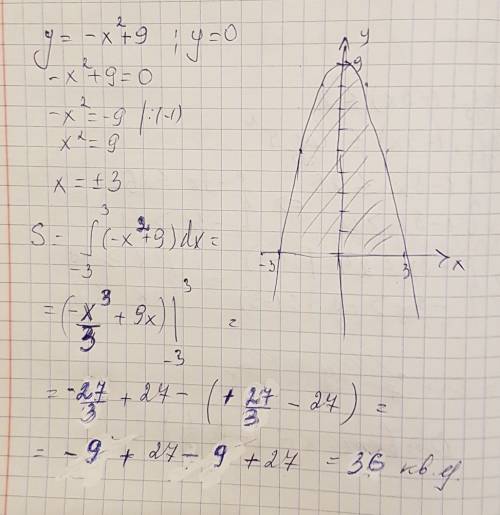 y = -x²+9 ; y=0
-x²+9=0
-x²=-9 |:(-1)
x²=9
x = ±3
S = ∫₋₃³ (-x²+9) dx =
= (-x³/3 + 9x) |₋₃³ =
= -27/3 + 27 - (+27/3 - 27) =
= -9 + 27 - 9 + 27 = 36 кв.ед.
y
9
-3
3
x